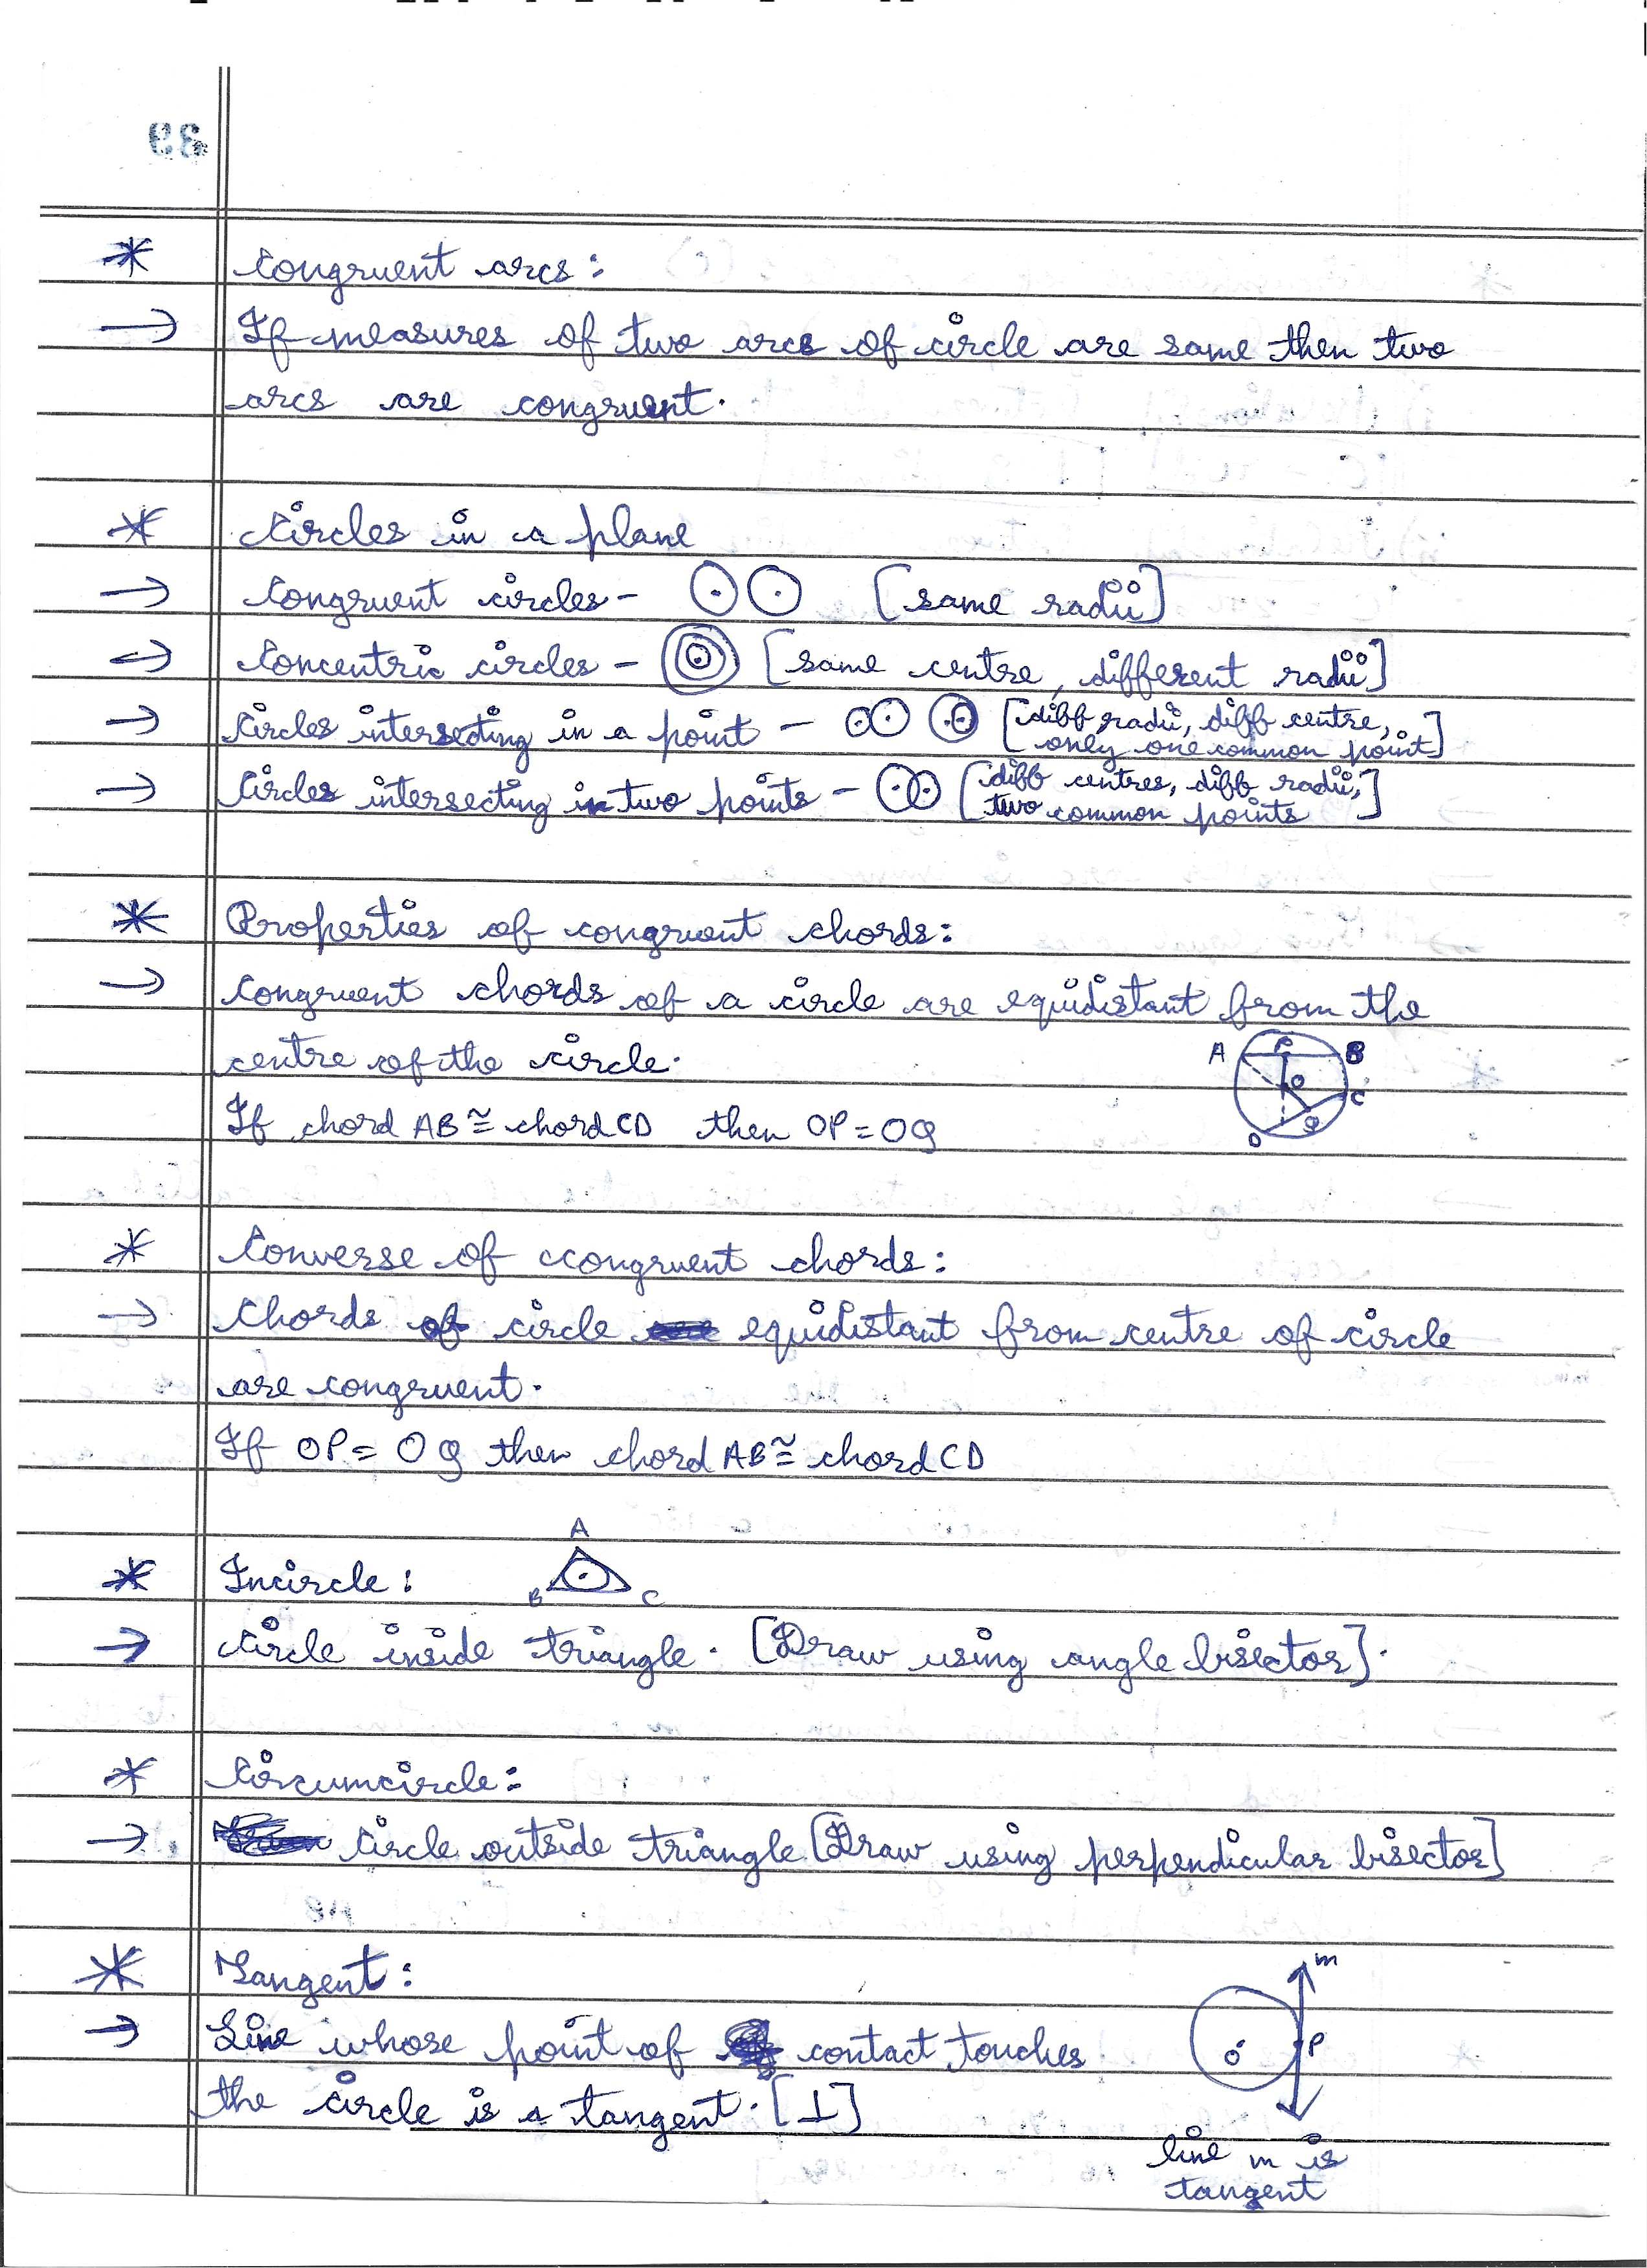 33
* Congruent arcs:
→ If measures of two arcs of circle are same then two
arcs are congruent.
* Circles in a plane
→ Congruent circles - [same radii]
→ Concentric circles - [same centre, different radii]
→ Circles intersecting in a point - [diff radii, diff centre,
only one common point]
→ Circles intersecting in two points - [diff centres, diff radii,
two common points]
* Properties of congruent chords:
→ Congruent chords of a circle are equidistant from the
centre of the circle.
A P B
O
C
D Q
If chord AB ≅ chord CD then OP = OQ
* Converse of ccongruent chords:
→ Chords of circle equidistant from centre of circle
are congruent.
If OP = OQ then chord AB ≅ chord CD
A
* Incircle:
B C
→ Circle inside triangle. [Draw using angle bisector].
* Circumcircle:
→ Circle outside triangle [Draw using perpendicular bisector]
* Tangent:
m
→ Line whose point of contact touches
O P
the circle is a tangent. [⊥]
line m is
tangent